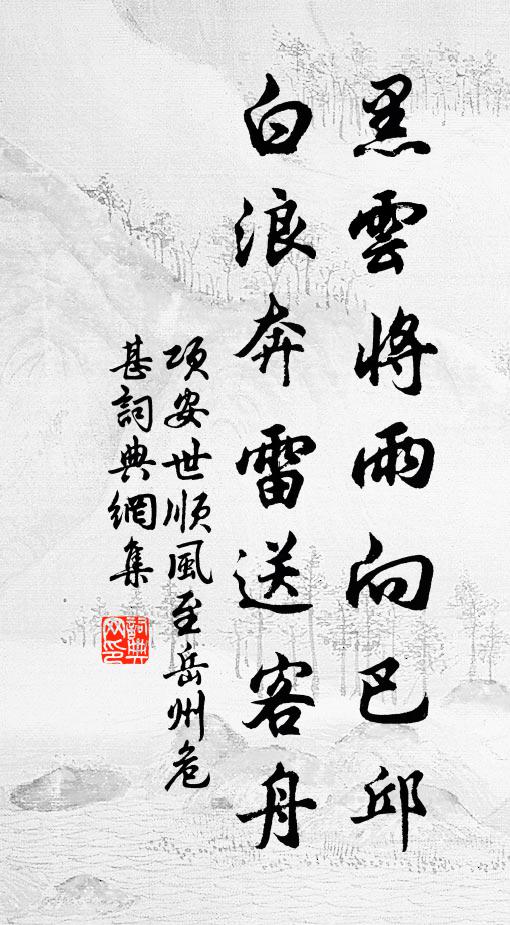 黑雲將雨向巴邱
白浪奔雷送客舟
項安世順風至岳州危
甚詞典網集
詞典
网印